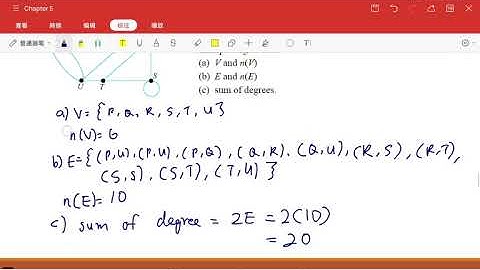 Chapter 5
查看 插入 编辑 标注 播放
普通画笔
U T S
(a) V and n(V)
(b) E and n(E)
(c) sum of degrees.
a) V= {P, Q, R, S, T, U}
n(V)= 6
b) E= {(P,U), (P,U), (P,Q), (Q,R), (Q,U), (R,S), (R,T),
(S,S), (S,T), (T,U)}
n(E)= 10
c) sum of degree = 2E = 2(10)
= 20